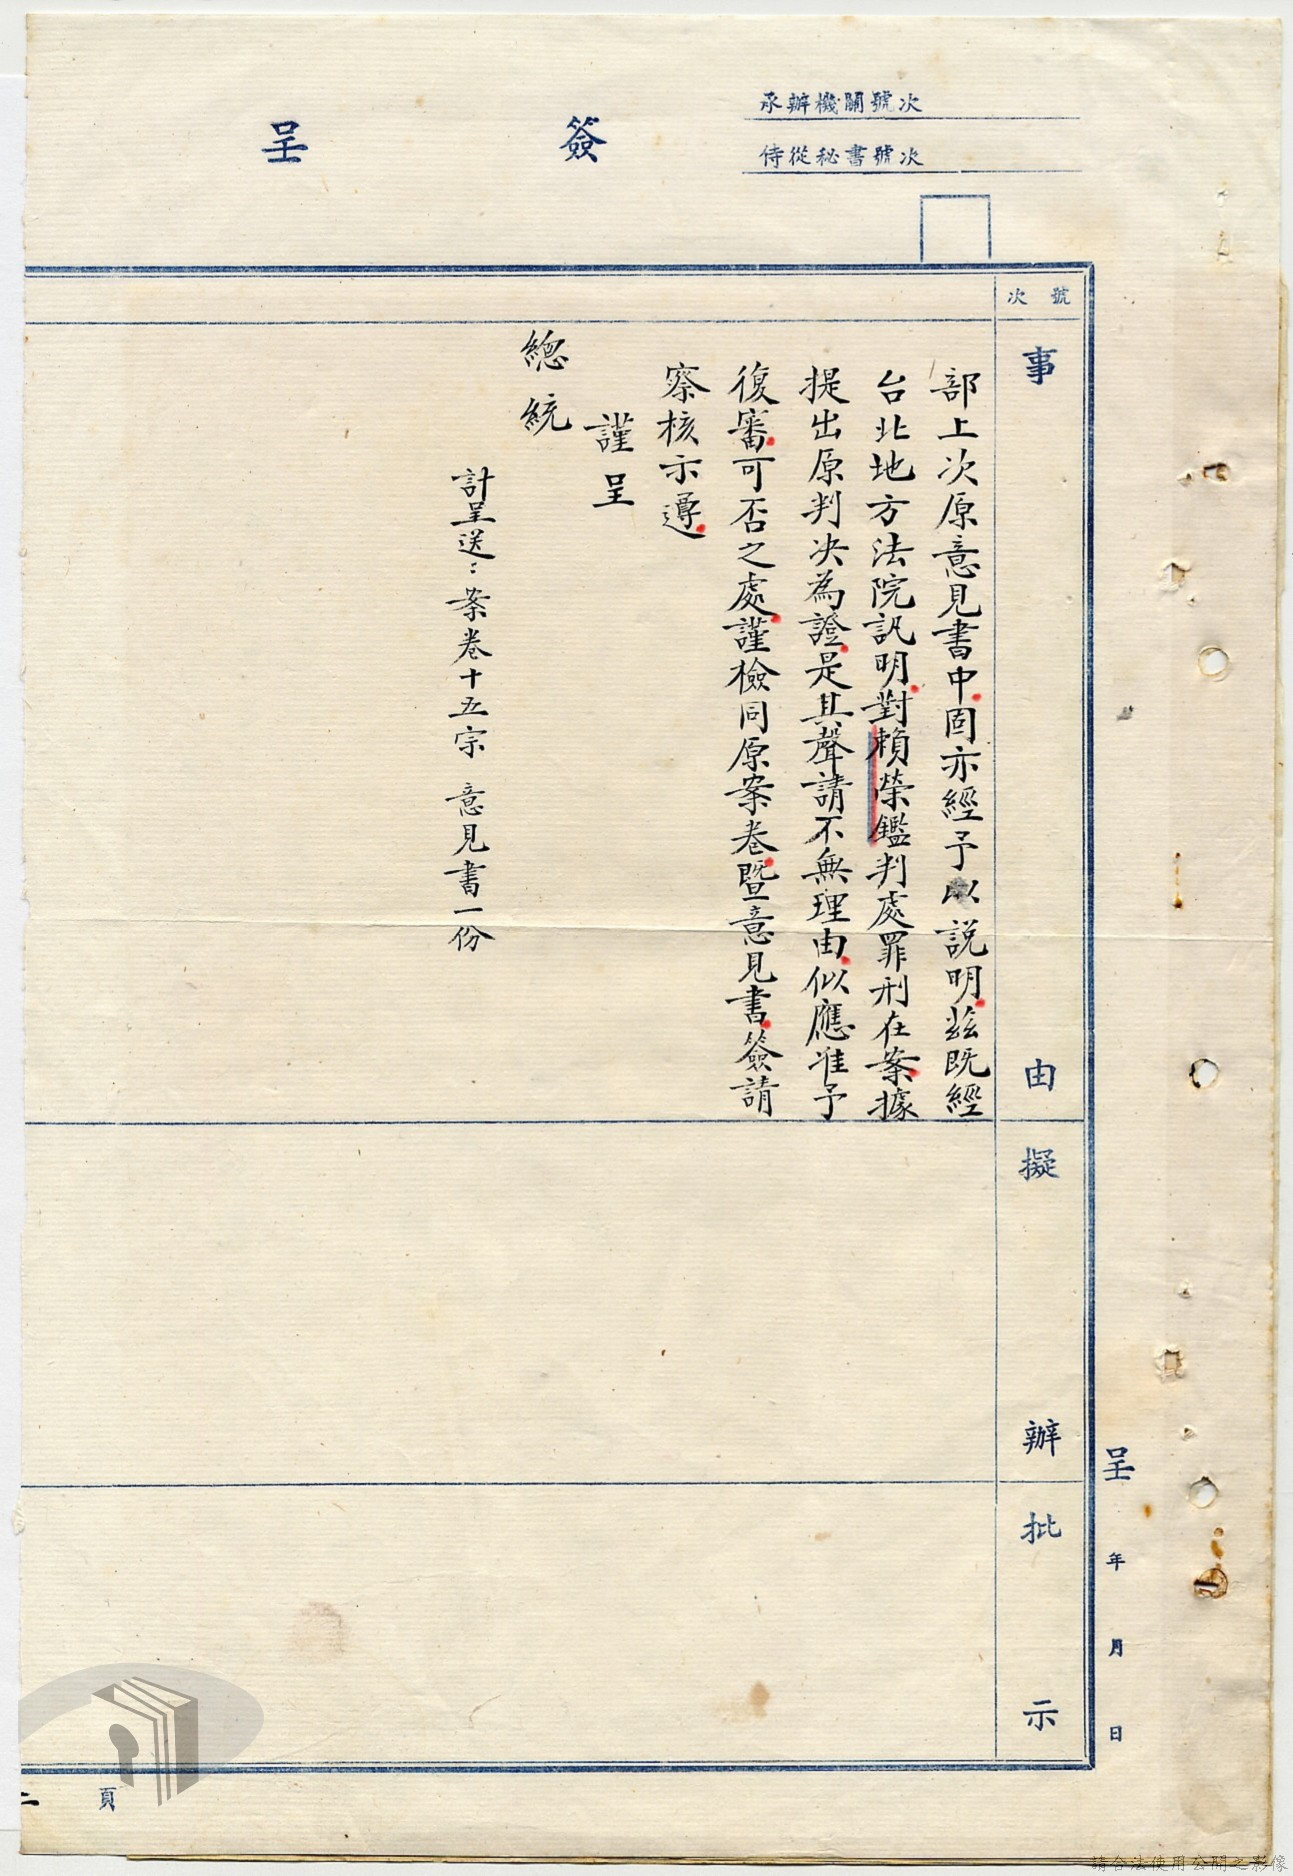 承辦機關號次
侍從秘書號次
簽呈
號次
事由
擬辦
批示
呈 年 月 日
部上次原意見書中固亦經予以說明茲既經
台北地方法院訊明對賴榮鑑判處罪刑在案據
提出原判決為證是其聲請不無理由似應准予
復審可否之處謹檢同原案卷暨意見書簽請
察核示遵
謹呈
總統
計呈送：案卷十五宗 意見書一份
頁
請合法使用公開之影像